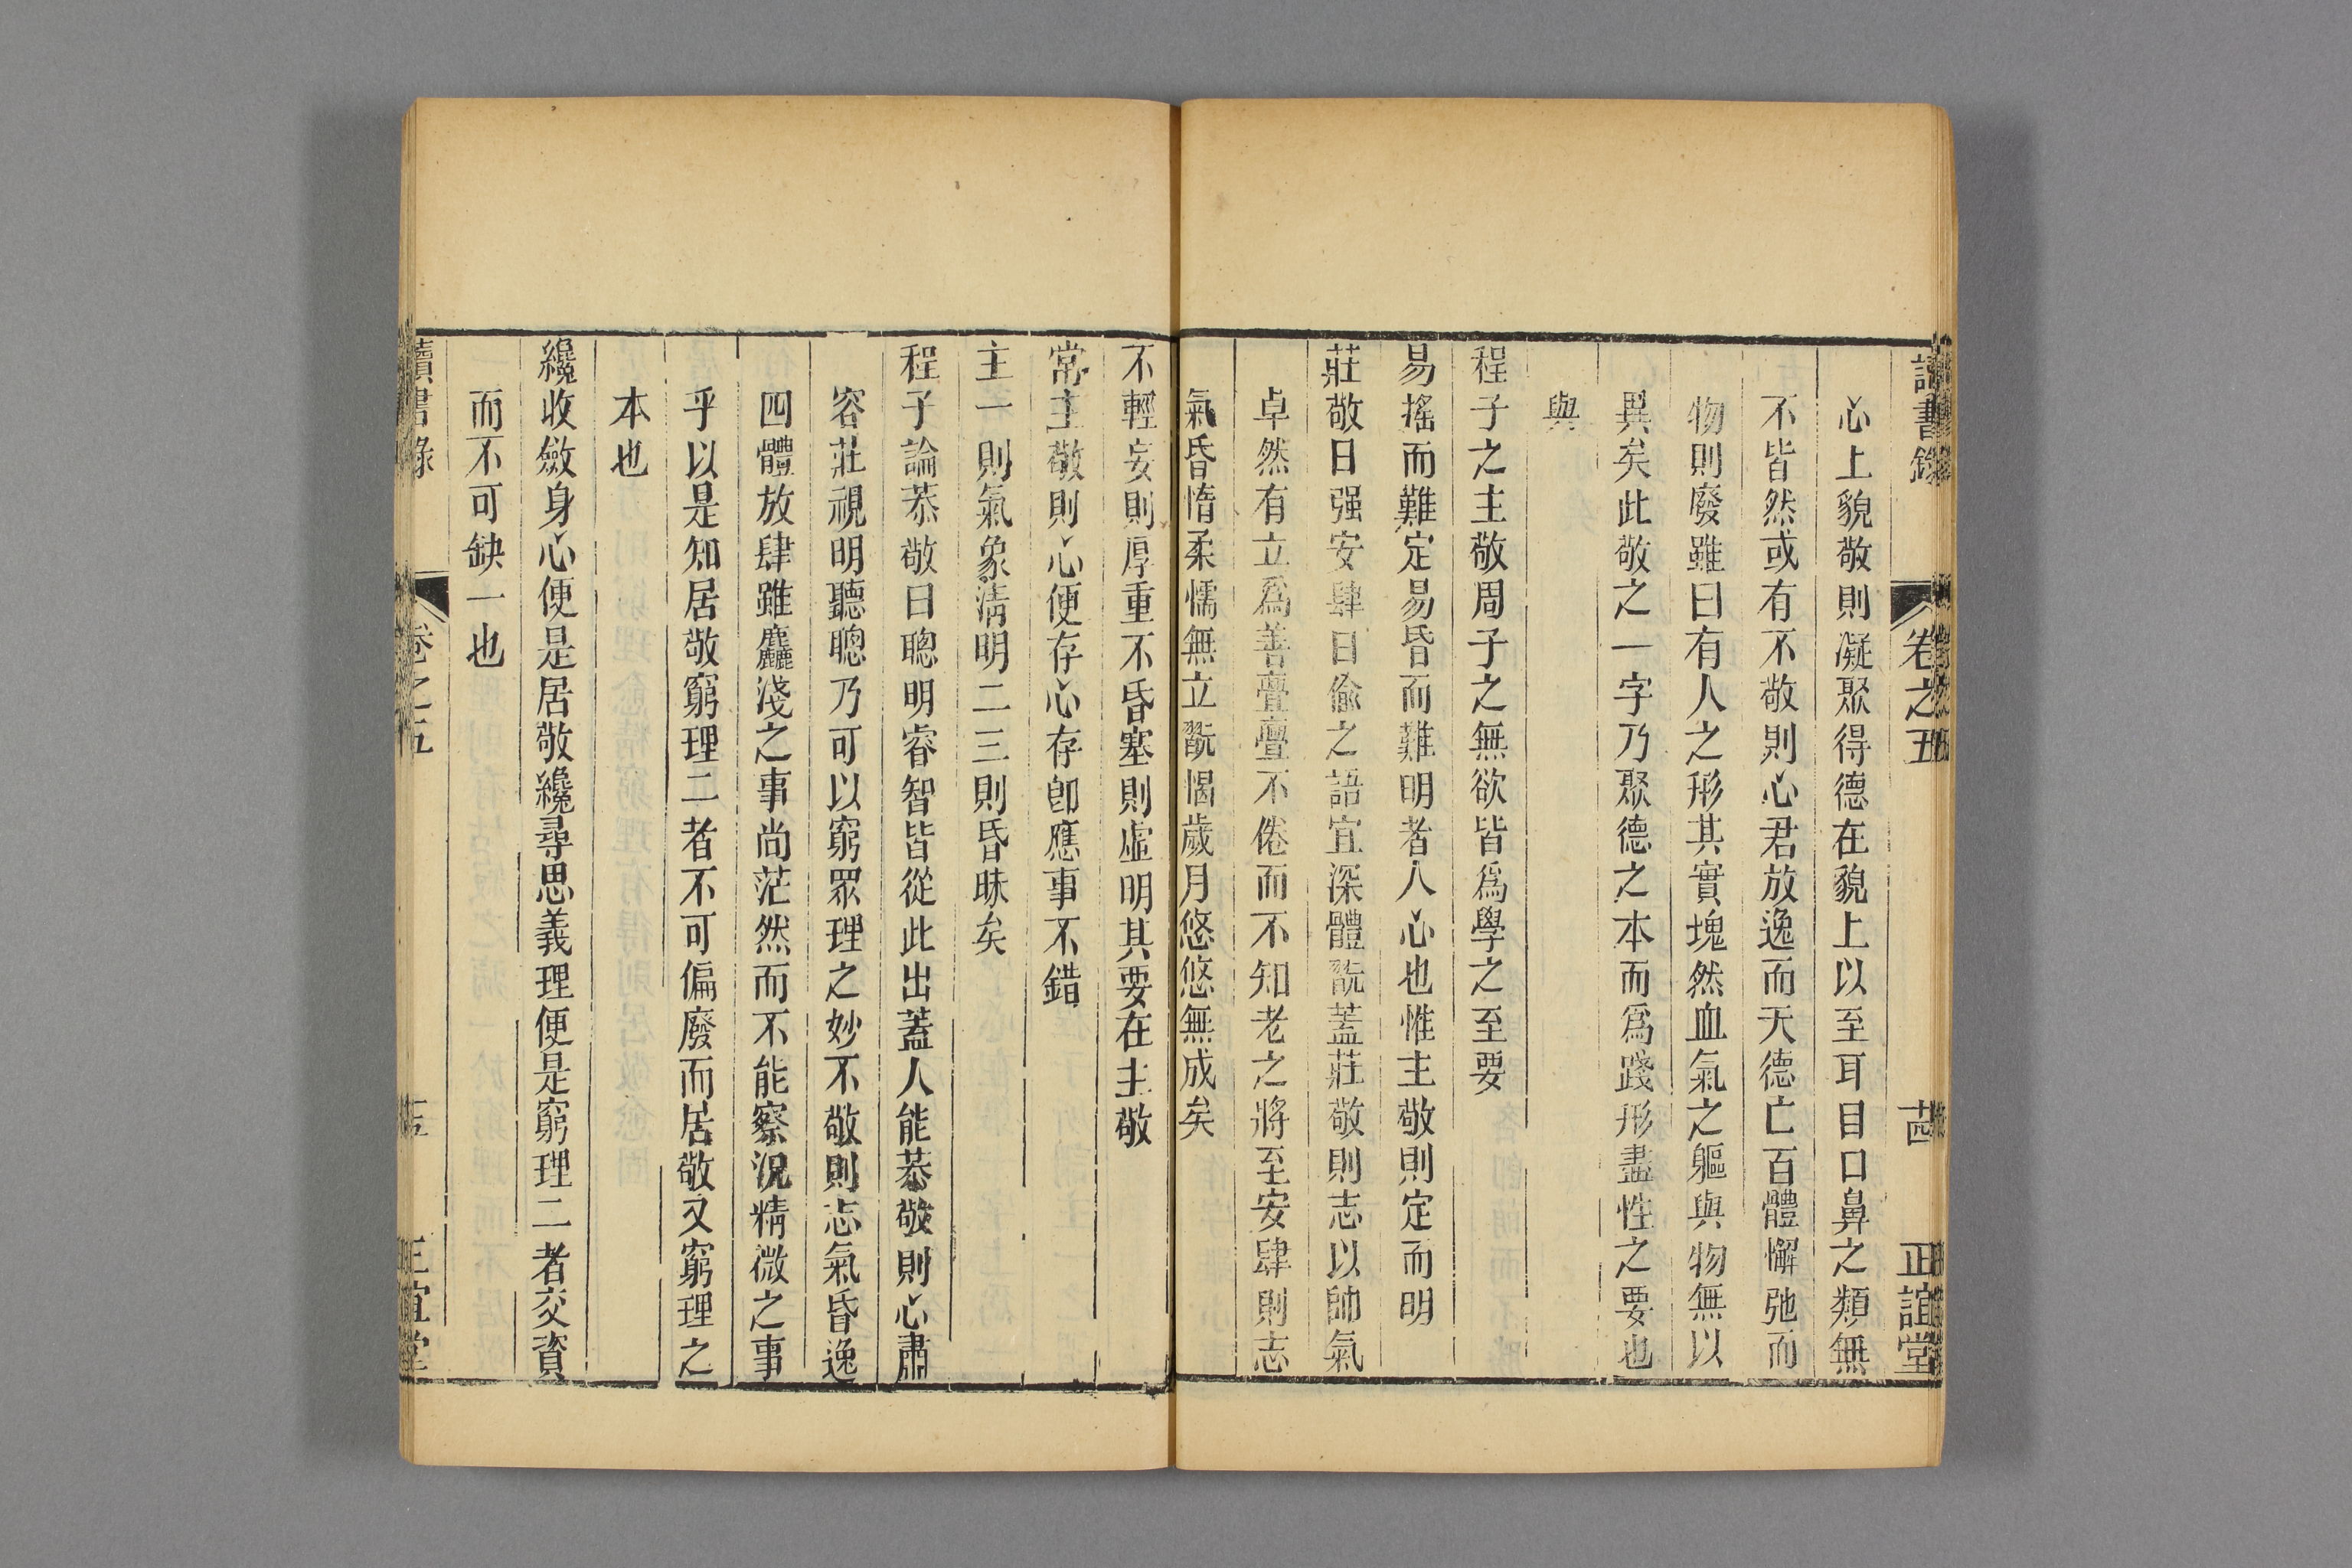 讀書錄 卷之五 茜 正誼堂
心上貌敬則凝聚得德在貌上以至耳目口鼻之類無
不皆然或有不敬則心君放逸而天德亡百體懈弛而
物則廢雖曰有人之形其實塊然血氣之軀與物無以
異矣此敬之一字乃聚德之本而爲踐形盡性之要也
與
程子之主敬周子之無欲皆爲學之至要
易搖而難定易昏而難明者人心也惟主敬則定而明
莊敬日强安肆日偸之語宜深體翫蓋莊敬則志以帥氣
卓然有立爲善亹亹不倦而不知老之將至安肆則志
氣昏惰柔懦無立翫愒歲月悠悠無成矣
不輕妄則厚重不昏塞則虛明其要在主敬
常主敬則心便存心存卽應事不錯
主一則氣象淸明二三則昏昧矣
程子論恭敬曰聰明睿智皆從此出蓋人能恭敬則心肅
容莊視明聽聰乃可以窮眾理之妙不敬則志氣昏逸
四體放肆雖麤淺之事尚茫然而不能察況精微之事
乎以是知居敬窮理二者不可偏廢而居敬又窮理之
本也
纔收斂身心便是居敬纔尋思義理便是窮理二者交資
而不可缺一也
讀書錄 卷之五 正誼堂